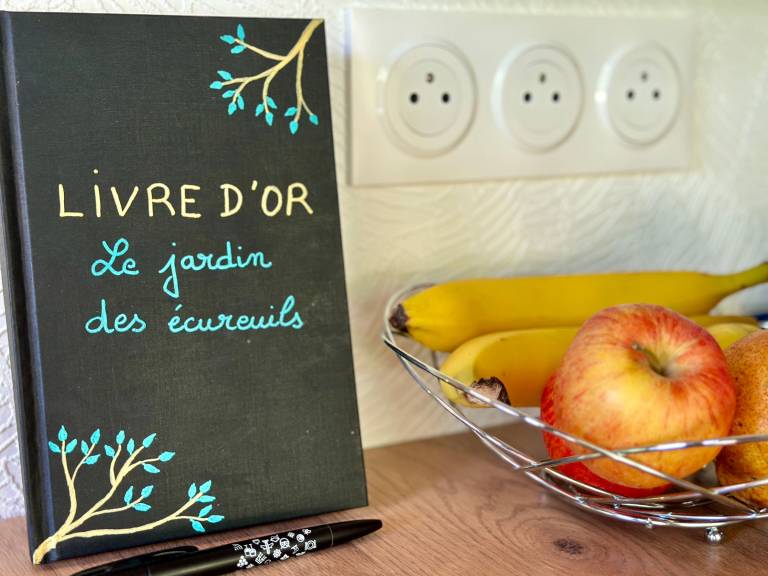 LIVRE D'OR
Le jardin
des écureuils